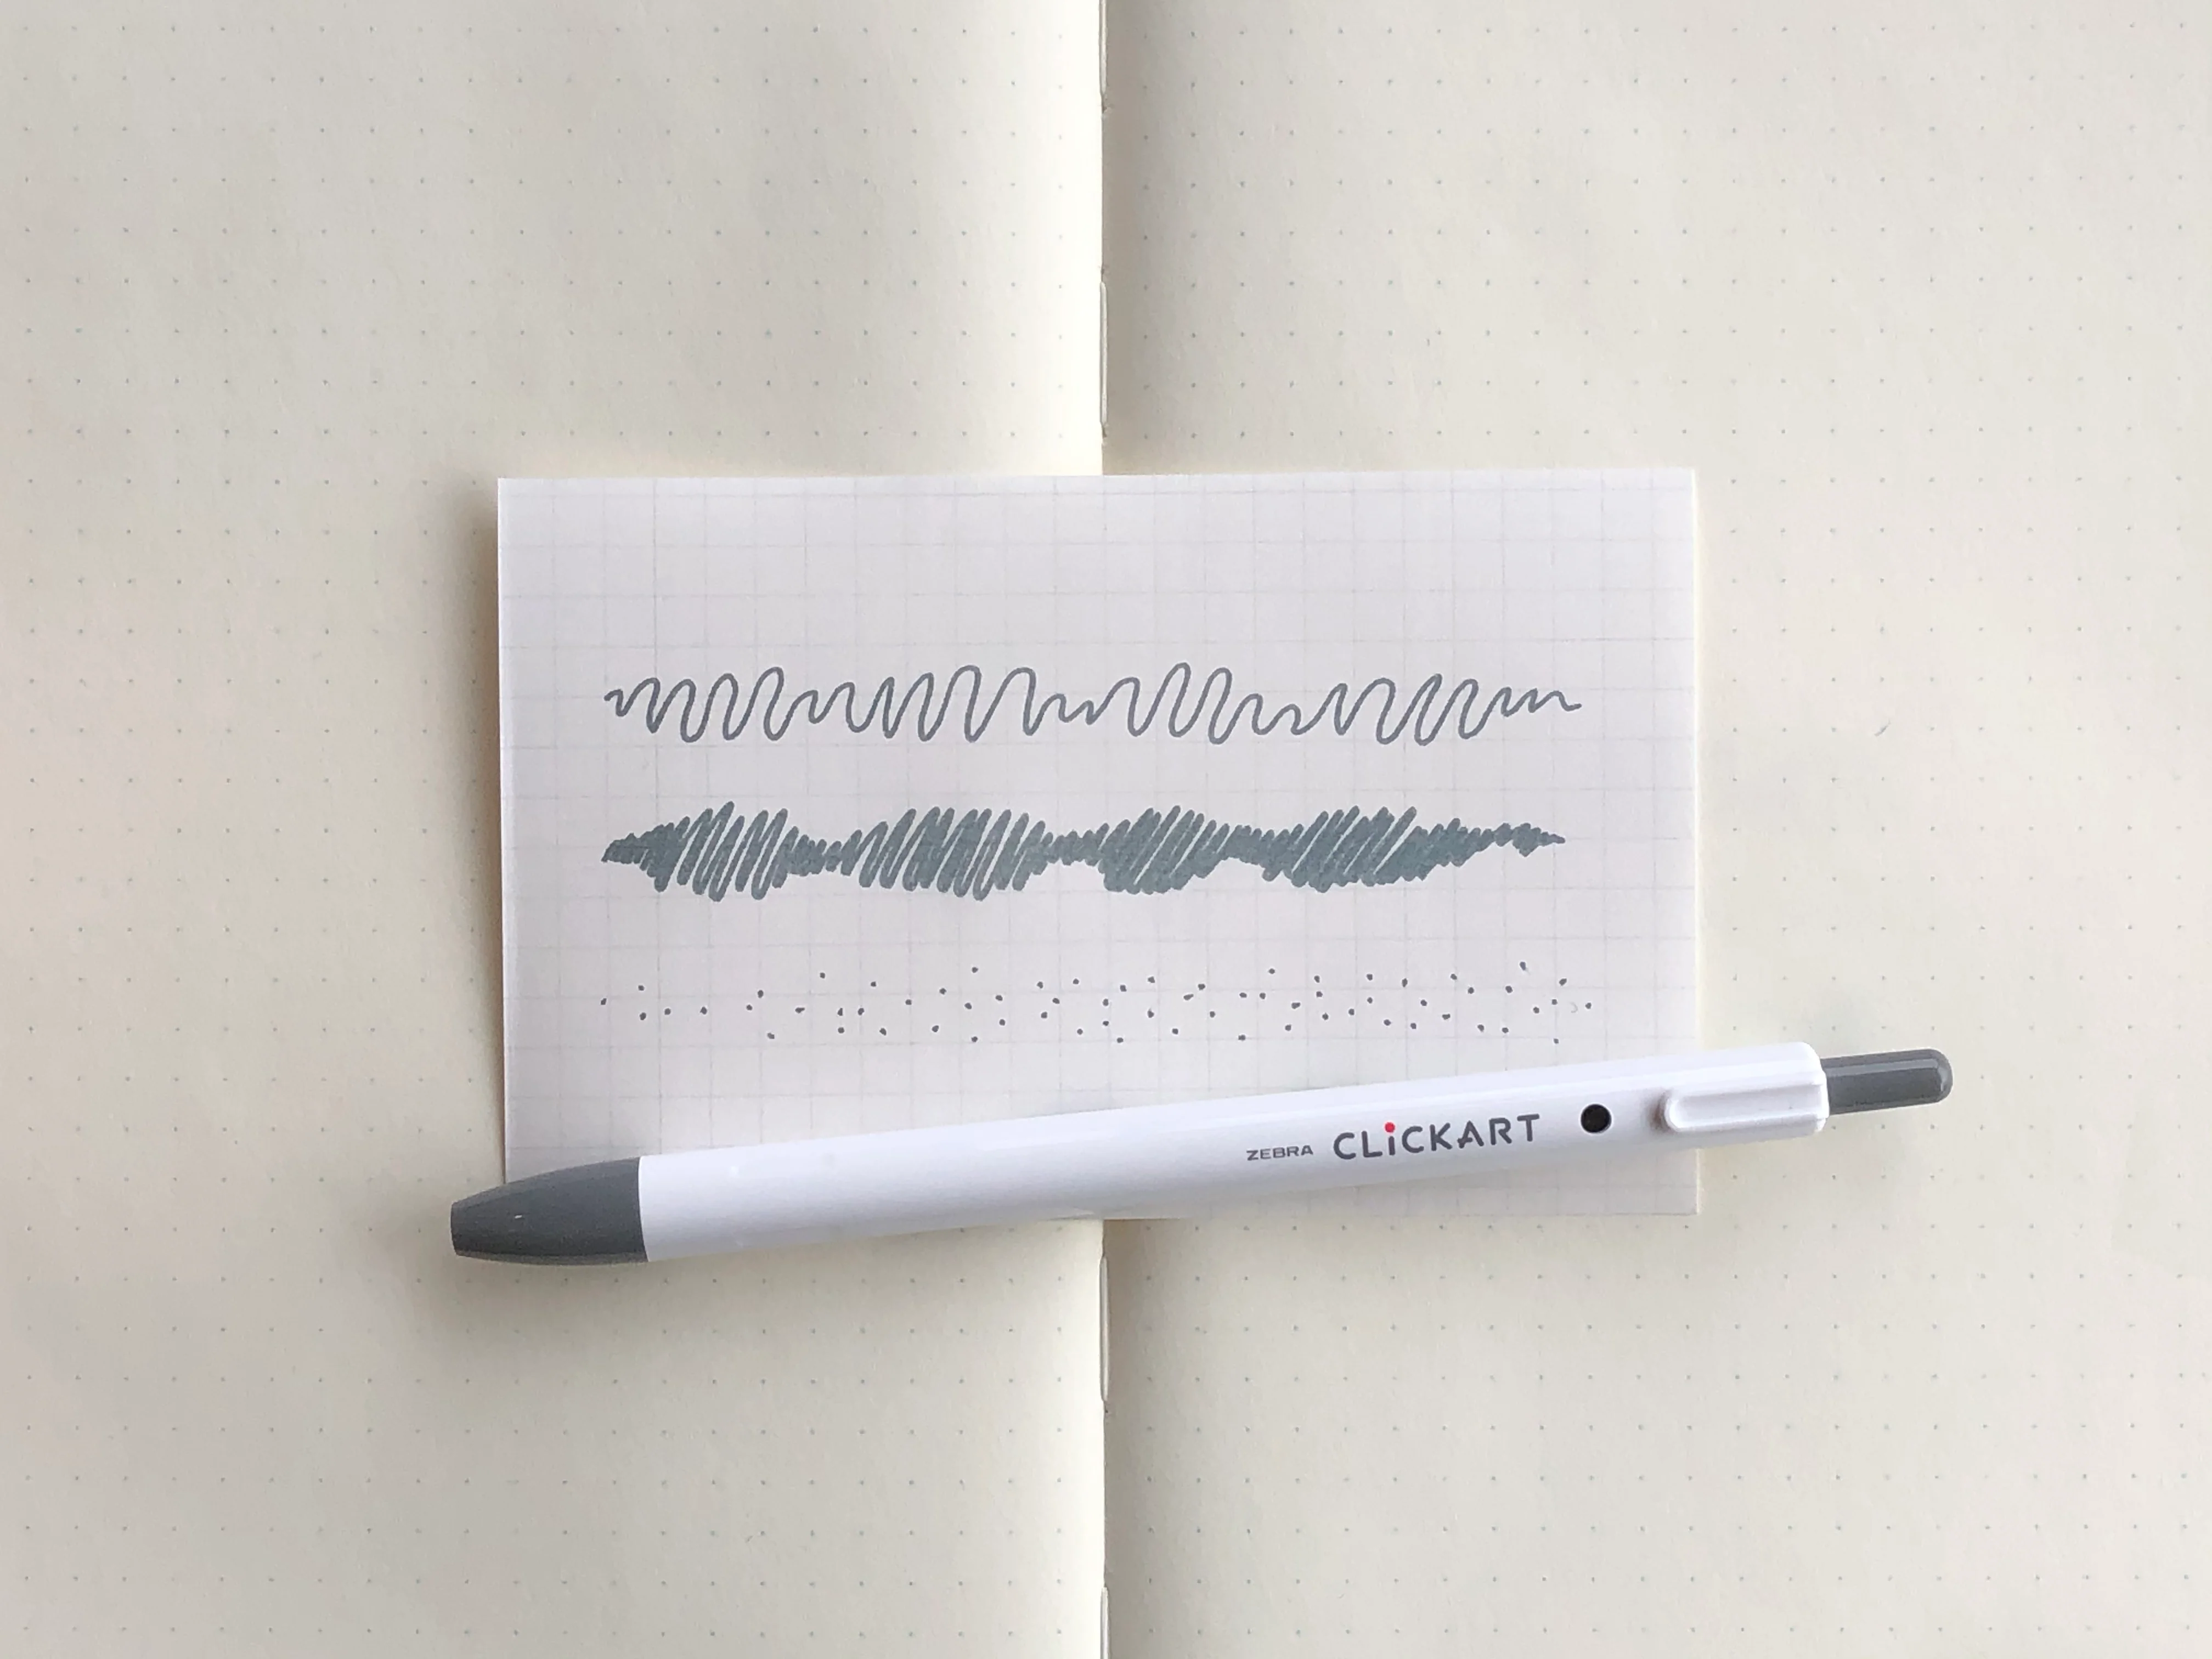 ZEBRA CLiCKART